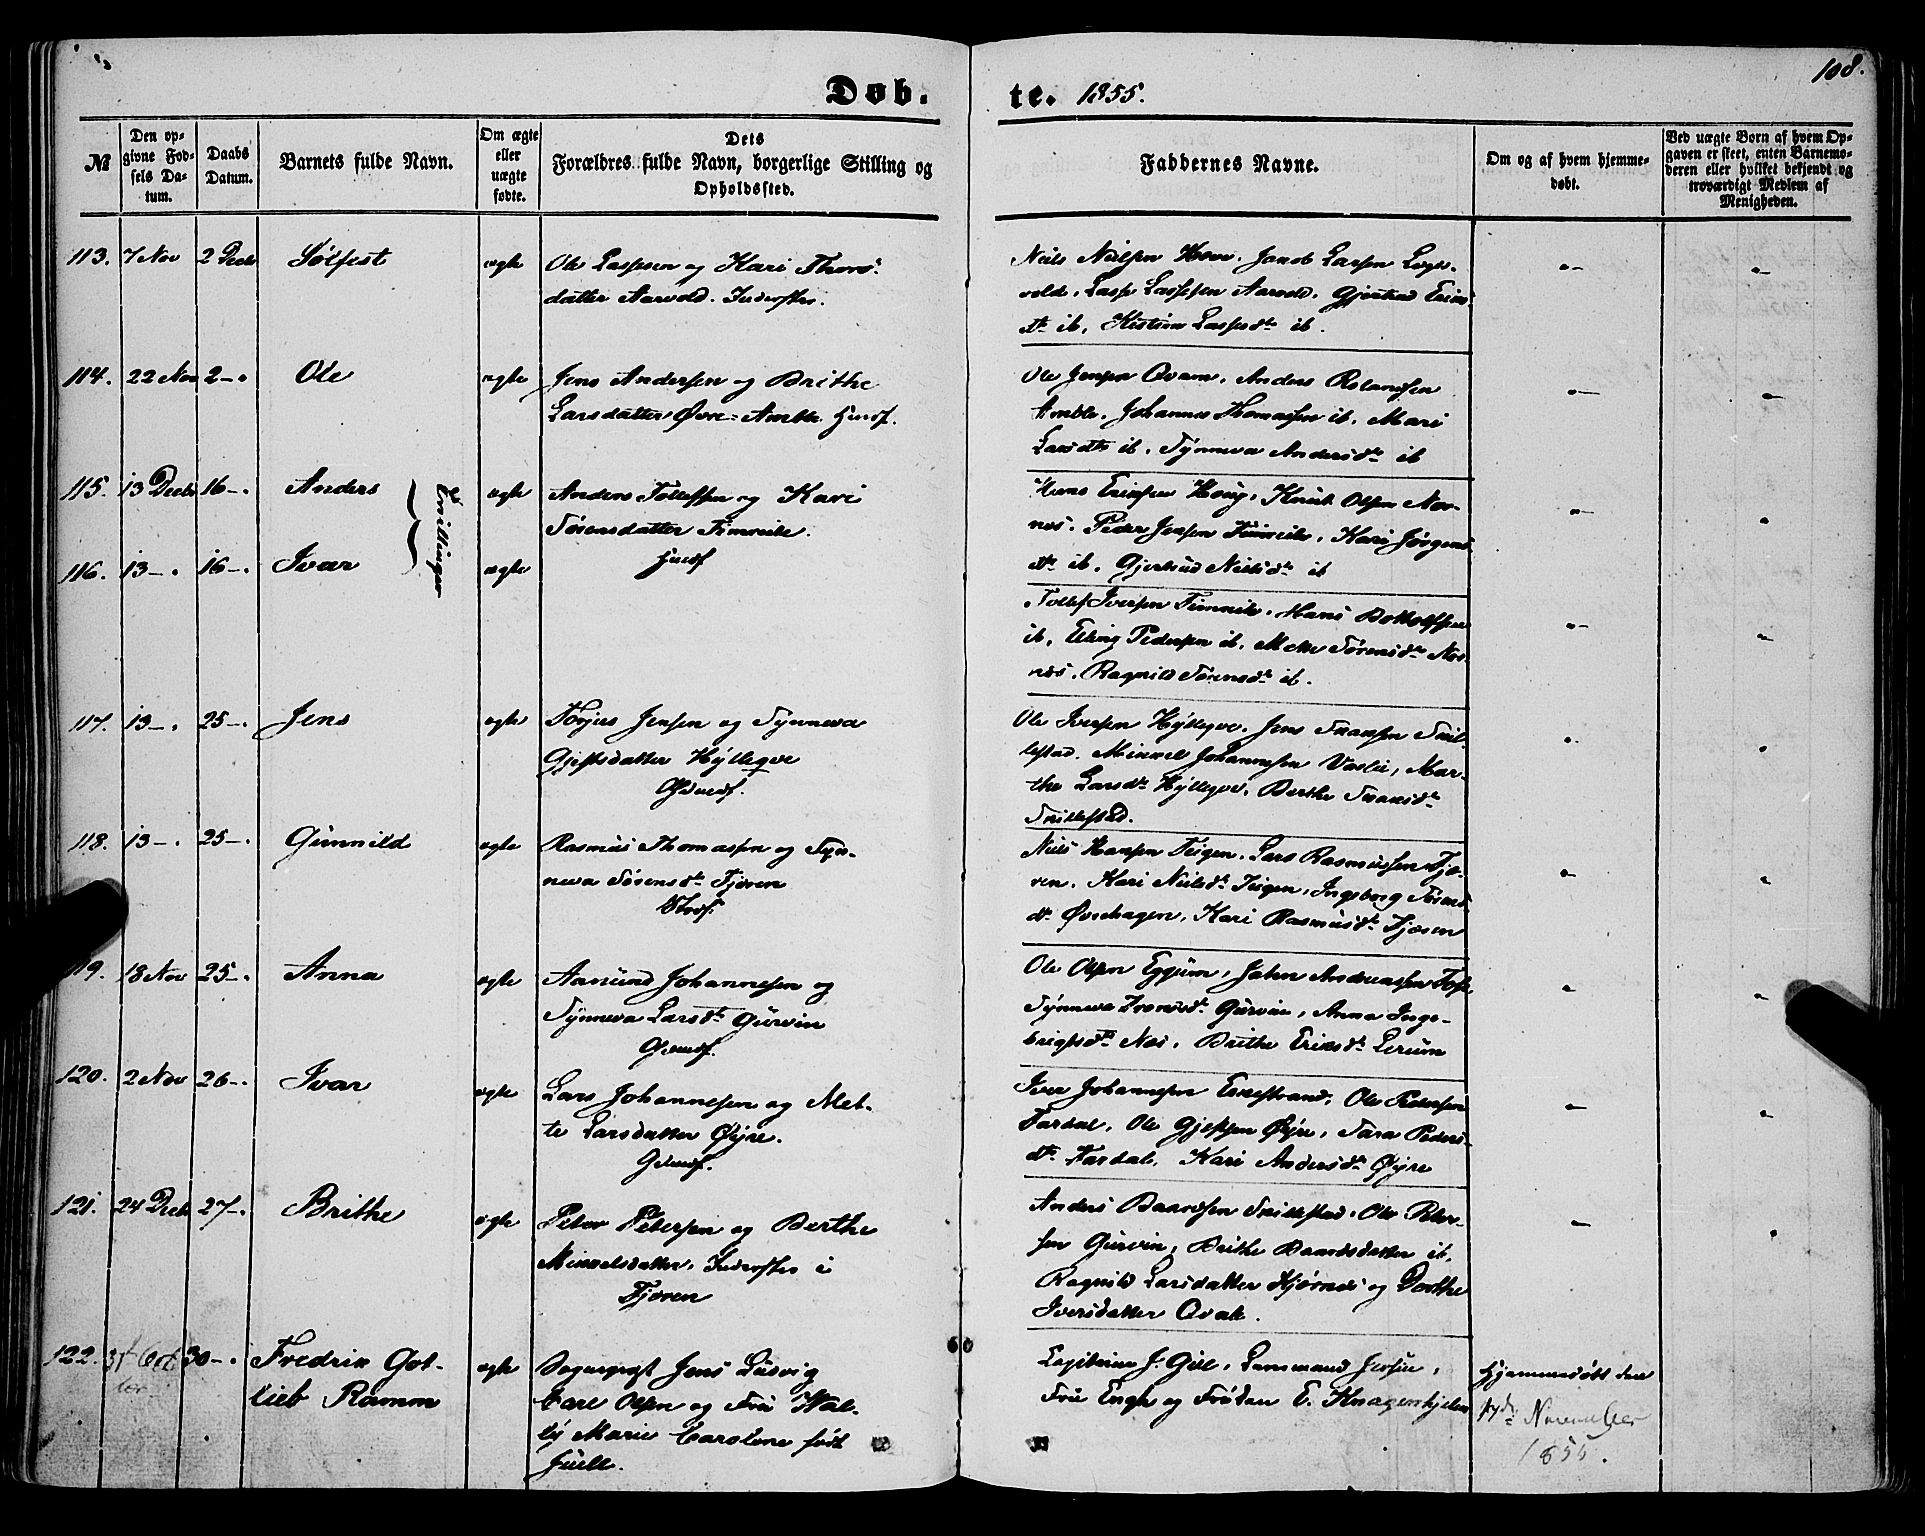 108.
Døb. te. 1855.
№
Den op-
givne Fød-
sels Da-
tum.
Daabs
Datum.
Barnets fulde Navn.
Om ægte
eller
uægte
fødte.
Dets
Forældres fulde Navn, borgerlige Stilling og
Opholdssted.
Faddernes Navne.
Om og af hvem hjemme-
døbt.
Ved uægte Børn af hvem Op-
gaven er skeet, enten Barnemo-
deren eller hvilket bekjendt og
troværdigt Medlem af
Menigheden.
113. 7 Nov 2 Decbr Sølfest ægte Ole Lassesen og Kari Thors-
datter Aarvold. Inderster.
Niels Nielsen Hove. Jacob Larsen Lægs-
vold. Lasse Lassesen Aarvold. Gjertrud Eriks
dtr ib, Kistina Lassesdtr ib.
114. 22 Nov 2 - . Ole ægte Jens Andersen og Brithe
Larsdatter Øvre-Amble. Huusf.
Ole Jensen Qvam. Anders Rolandsen
Amble. Johannes Thomassen ib. Mari
Larsdtr ib. Synneva Andersdtr ib
115. 13 Decbr 16 - . Anders ægte Anders Tollefsen og Kari
Sørensdatter Fimreite.
Huusf
Tvillinger
Hans Eriksen Houg. Knut Olsen Nor-
næs. Peder Jensen Fimreite. Kari Jørgens
dtr ib. Gjertrud Nielsdtr ib
116. 13 - . 16 - . Ivar ægte
Tollef Iversen Fimreite. Hans Botolfsen
ib. Elling Pedersen ib. Mette Sørensdtr Nor-
næs. Ragnild Sørensdtr ib.
117. 13 - . 25 - . Jens ægte Torjus Jensen og Synneva
Gjestsdatter Hyllegve
Ole Iversen Hyllegve. Jens Svansen Skil-
lestad. Mikkel Johannesen Vaslie, Mar-
the Larsdtr Hyllegve. Berthe Svansdtr
Skillestad.
118. 13 - . 25 - . Gunnild ægte Rasmus Thomassen og Syn-
neva Sørensdtr Fjæren
Strdsf.
Niels Hansen Teigen. Lars Rasmussen Fjæ-
ren. Kari Nielsdtr Teigen, Ingeborg Sørens
dtr Øvrehagen, Kari Rasmusdtr Fjæren
119. 18 Nov 25 - . Anna ægte Aamund Johannesen og
Synneva Larsdtr Gurvin
Ole Olsen Eggum, John Andreassen
Synneva Gurvin, Anna Inge-
brigtsdtr Næs. Brithe Eriksdtr Lerum
120. 2 Nov 26 - . Ivar ægte Lars Johannesen og Met-
te Larsdatter Øyre.
Iver Johannesen Eskestrand, Ole Pedersen
Fardal. Ole Gjessen Øyre, Sara Peders-
dtr Fardal. Kari Andersdtr Øyre
121. 24 Decbr 27 - . Brithe ægte Peter Petersen og Berthe
Mikkelsdatter. Inderster i
Fjæren
Anders Baardsen Skillestad. Ole Peter-
sen Gurvin, Brithe Baardsdatter ib.
Ragnild Larsdatter Hjørnæs og Dorthe
Iversdatter Qvale.
122. 31 Octo
ber 30 - . Fredrik Got-
lieb Ramm ægte Sognepræst Jens Ludvig
Carl Olsen og Frue Wal-
ly Marie Caroline født
Juell.
Capitaine J. Gill. Lensmand Jersin,
Frue Engh og Frøken E. Knagenhjelm
Hjemmedøbt den
November
1855.